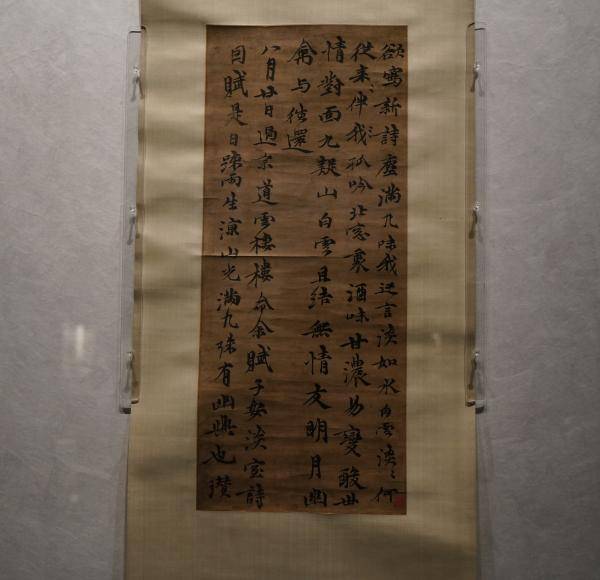 欲寫新詩塵滿几味我迂言淡如水白雲淡〻何
從来伴我孤吟北窓裏酒味甘濃易變酸世
情對面九疑山白雲且結無情友明月幽
禽与往還
八月廿日過宗道雲樓樓命余賦子安淡室詩
囙賦是日疎雨生涼山光滿几殊有幽興也瓚